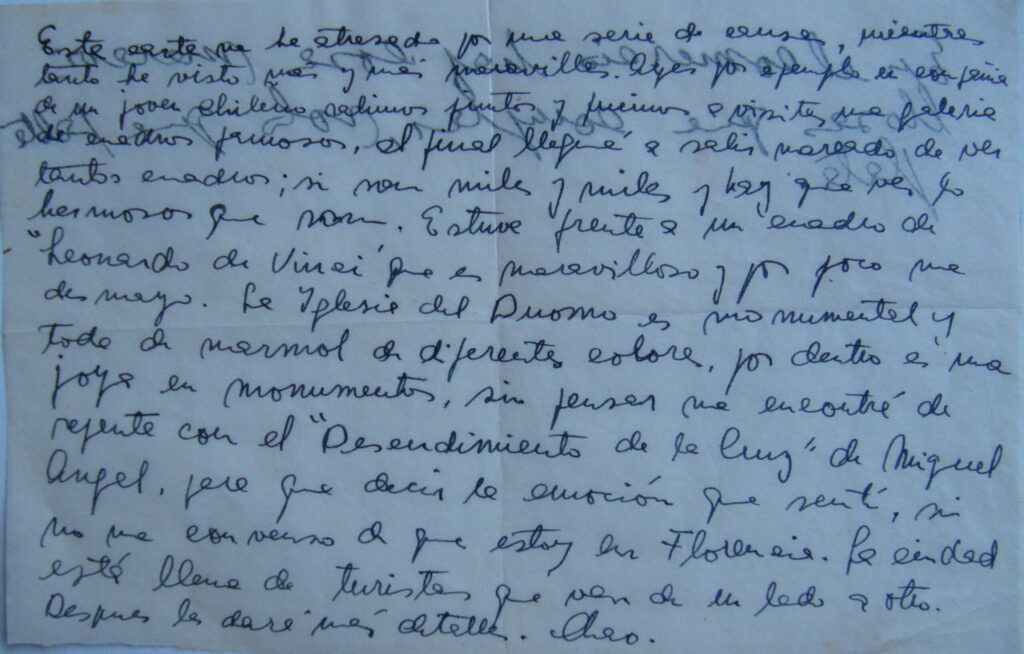 Esta carta se ha atrasado por una serie de causas, mientras
tanto he visto más y más maravillas. Ayer por ejemplo en compañia
de un joven chileno salimos juntos y fuimos a visitar una galeria
de cuadros famosos, al final llegué a salir mareado de ver
tantos cuadros; si son miles y miles y hay que ver lo
hermosos que son. Estuve frente a un cuadro de
"Leonardo de Vinci" que es maravilloso y por poco me
desmayo. La Iglesia del Duomo es monumental y
toda de marmol de diferentes colores, por dentro es una
joya en monumentos, sin pensar me encontré de
repente con el "Desendimiento de la Cruz" de Miguel
Angel, para que decir la emoción que sentí, si
no me convenso de que estoy en Florencia. La ciudad
está llena de turistas que van de un lado a otro.
Despues le daré más detalles. Chao.